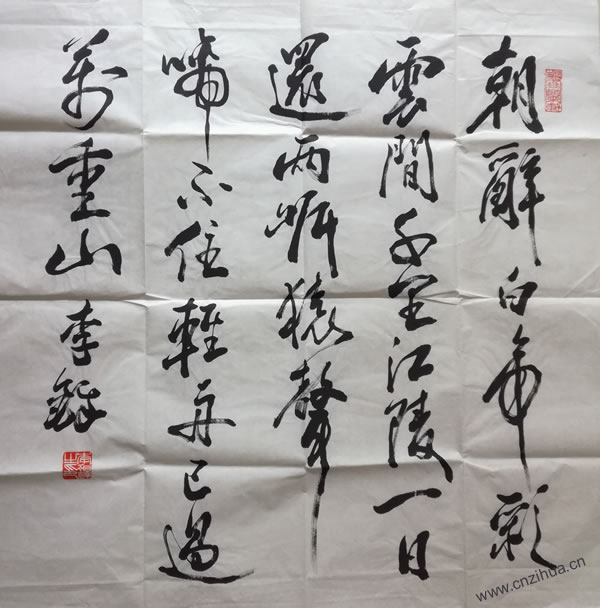 朝辭白帝彩
雲間千里江陵一日
還兩岸猿聲
啼不住輕舟已過
萬重山 李
www.cnzihua.cn